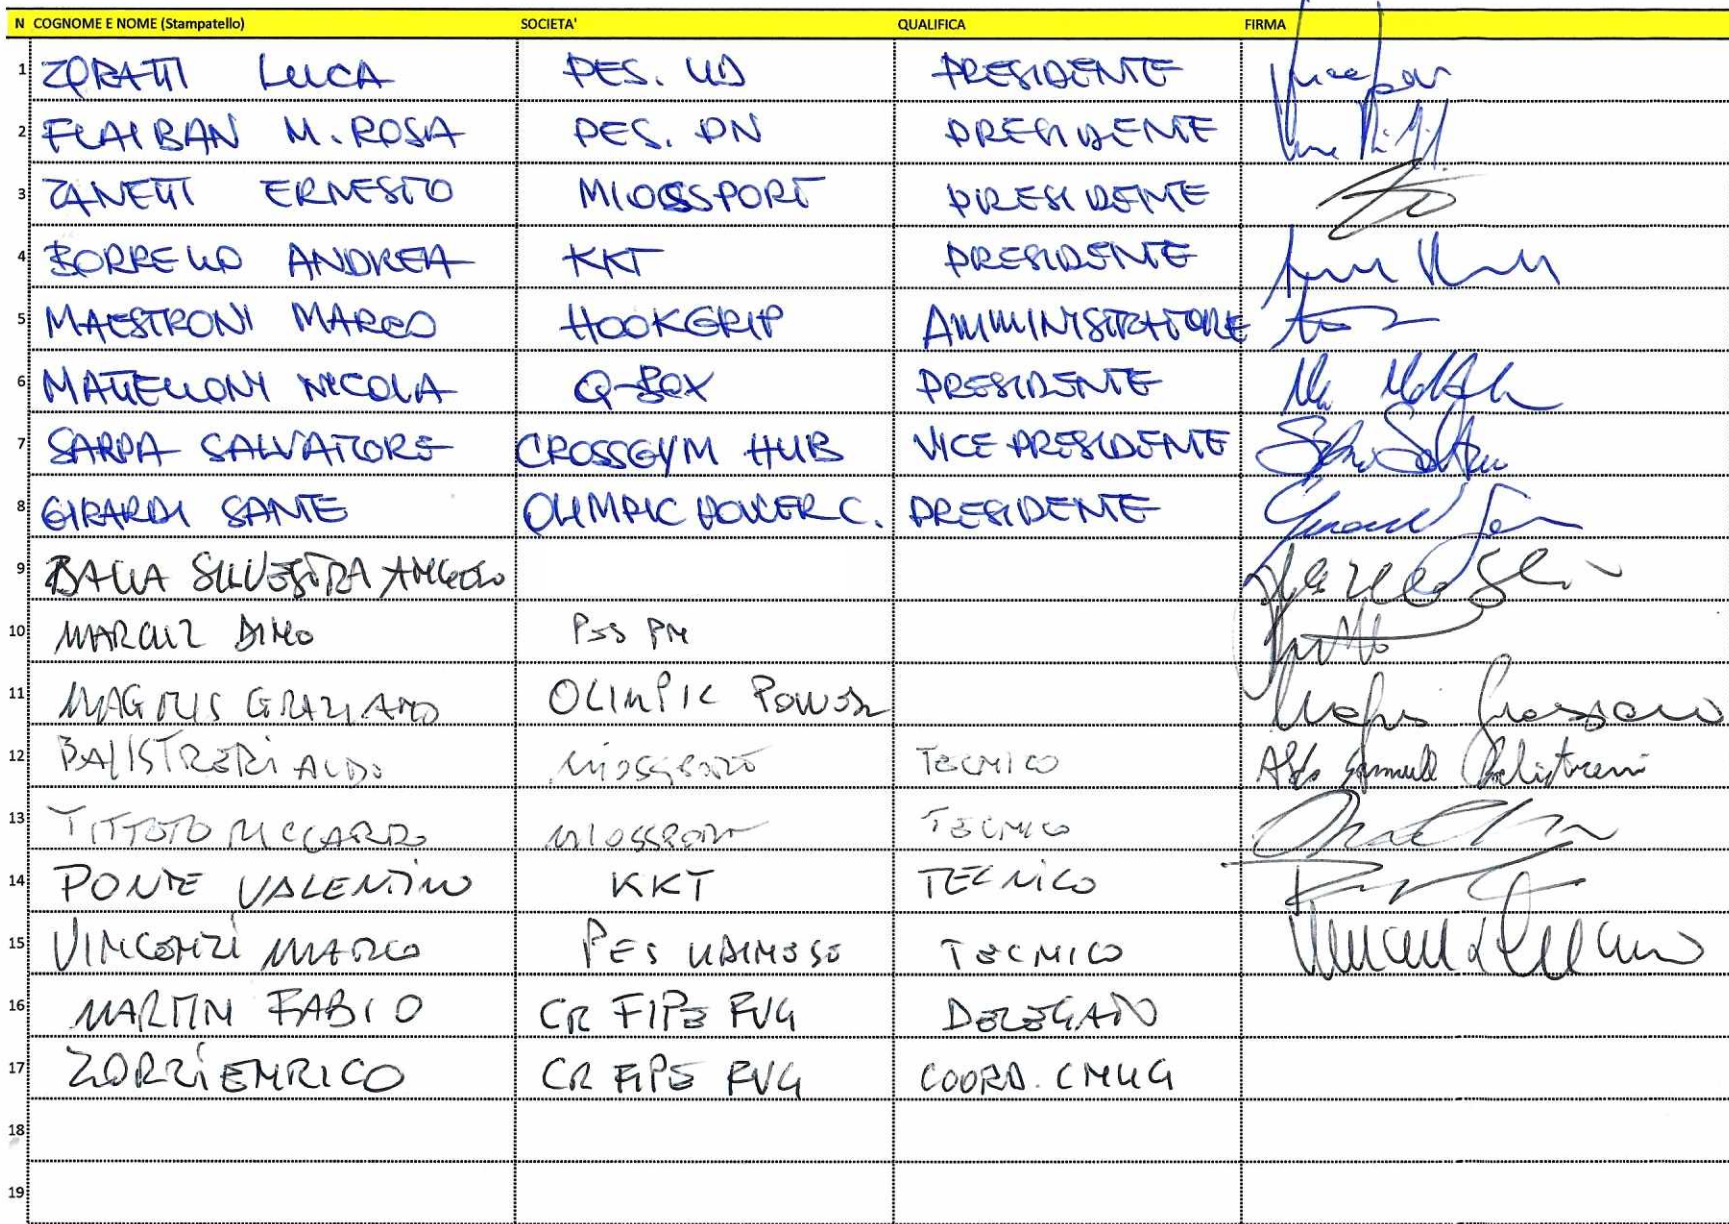 N COGNOME E NOME (Stampatello) SOCIETA' QUALIFICA FIRMA
1 ZORATTI LUCA PES. UD PRESIDENTE
2 FLAIBAN M. ROSA PES. PN PRESIDENTE
3 ZANETTI ERNESTO MIOSSPORT PRESIDENTE
4 BORRELLO ANDREA KKT PRESIDENTE
5 MAESTRONI MARCO HOOKGRIP AMMINISTRATORE
6 MATTELLONI NICOLA Q-BOX PRESIDENTE
7 SARPA SALVATORE CROSSGYM HUB VICE PRESIDENTE
8 GIRARDI SANTE OLIMPIC POWER C. PRESIDENTE
9 BALLA SILVESTRA ANGELO
10 MARCUZ DINO PES PN
11 MAGRIS GRAZIANO OLIMPIC POWER
12 BALISTRERI ALDO MIOSSPORT TECNICO Aldo Samuele Balistreri
13 TITTOTO RICCARDO MIOSSPORT TECNICO
14 PONTE VALENTINO KKT TECNICO
15 VINCENZI MARCO PES UDINESE TECNICO
16 MARTIN FABIO CR FIPE FVG DELEGATO
17 ZORZI ENRICO CR FIPE FVG COORD. CNUG
18
19